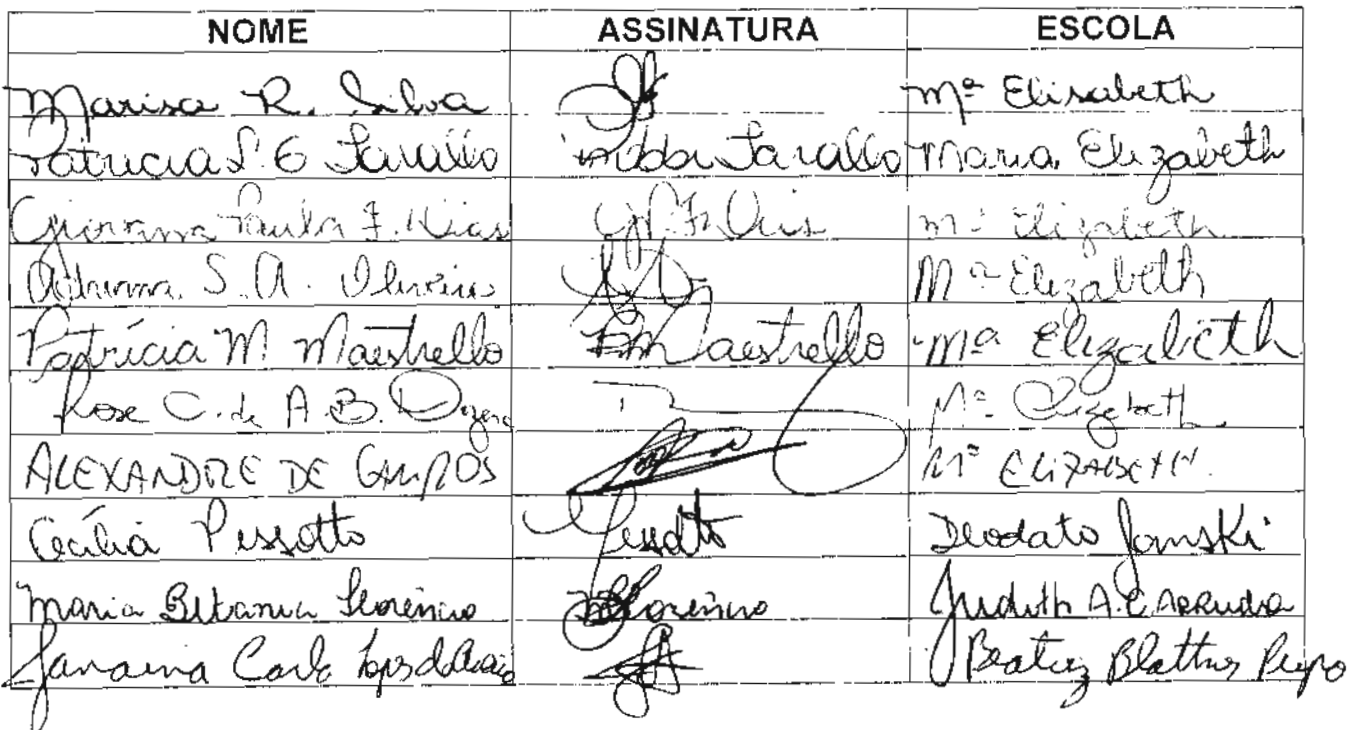 NOME ASSINATURA ESCOLA
Marisa R. Silva Mª Elisabeth
Patrucia S. G Savallo Savallo Maria Elizabeth
Giovanna Paula F. Dias Mª Elizabeth
Adriana S. A. Oliveira Mª Elizabeth
Patrícia M Maestrello PMaestrello Mª Elizabeth
Rose C. de A. B. Mª Elizabeth
ALEXANDRE DE CAMPOS Mª ELIZABETH.
Cecília Pessotto Pessotto Deodato Janski
Maria Betania Florêncio MFlorêncio Judith A. C ARRUDA
Janaina Carla Beatriz Blattner Pupo